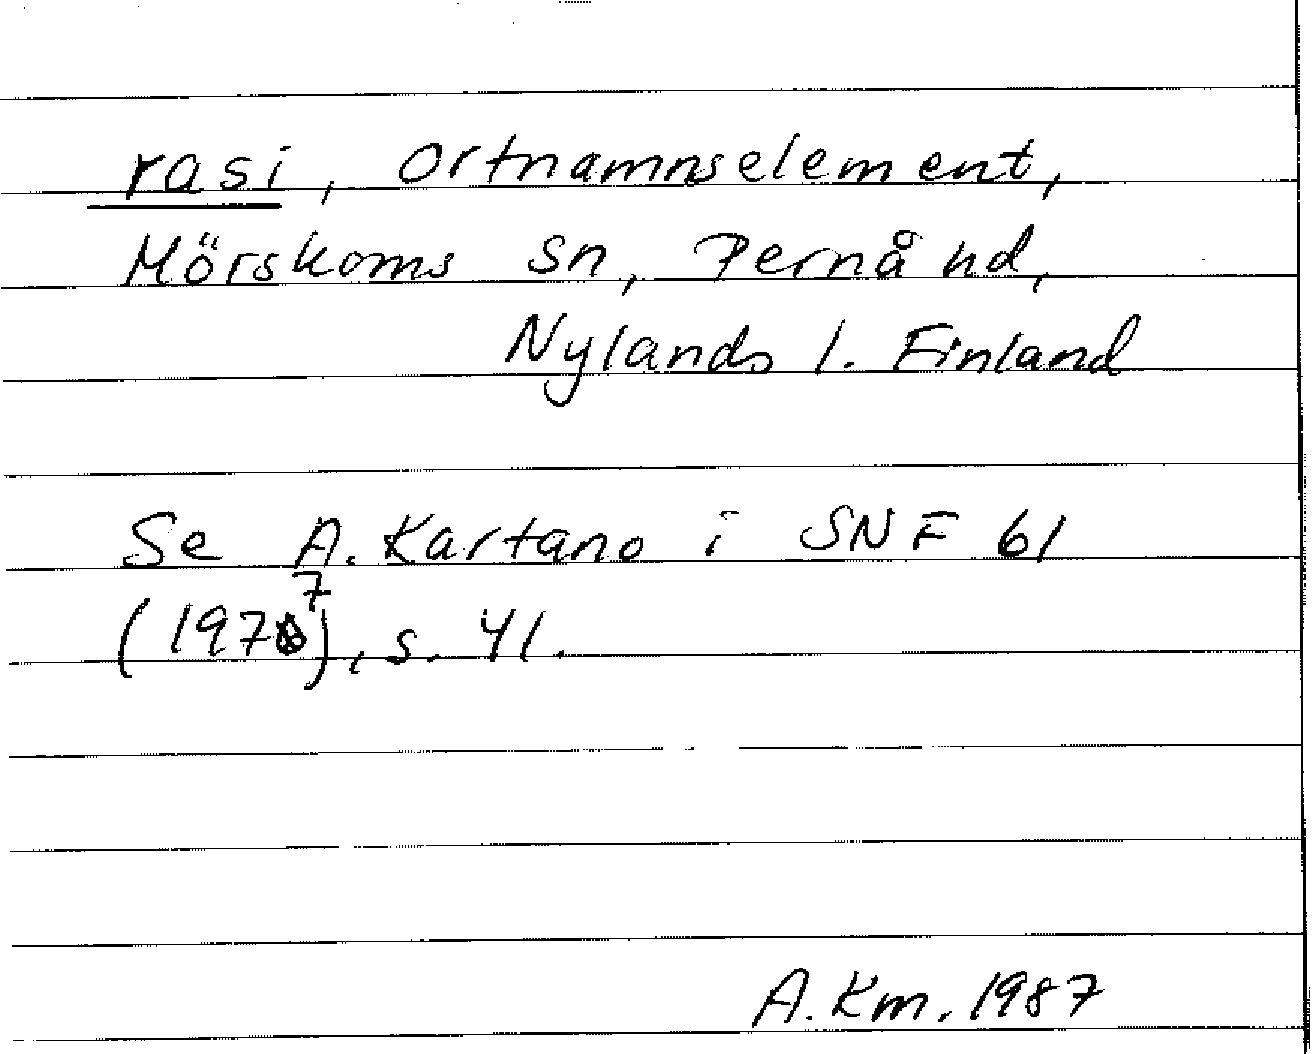 rasi, ortnamnselement,
Mörskoms sn, Pernå hd,
Nylands l. Finland
Se A. Kartano i SNF 61
(1977), s. 41.
A. Km. 1987